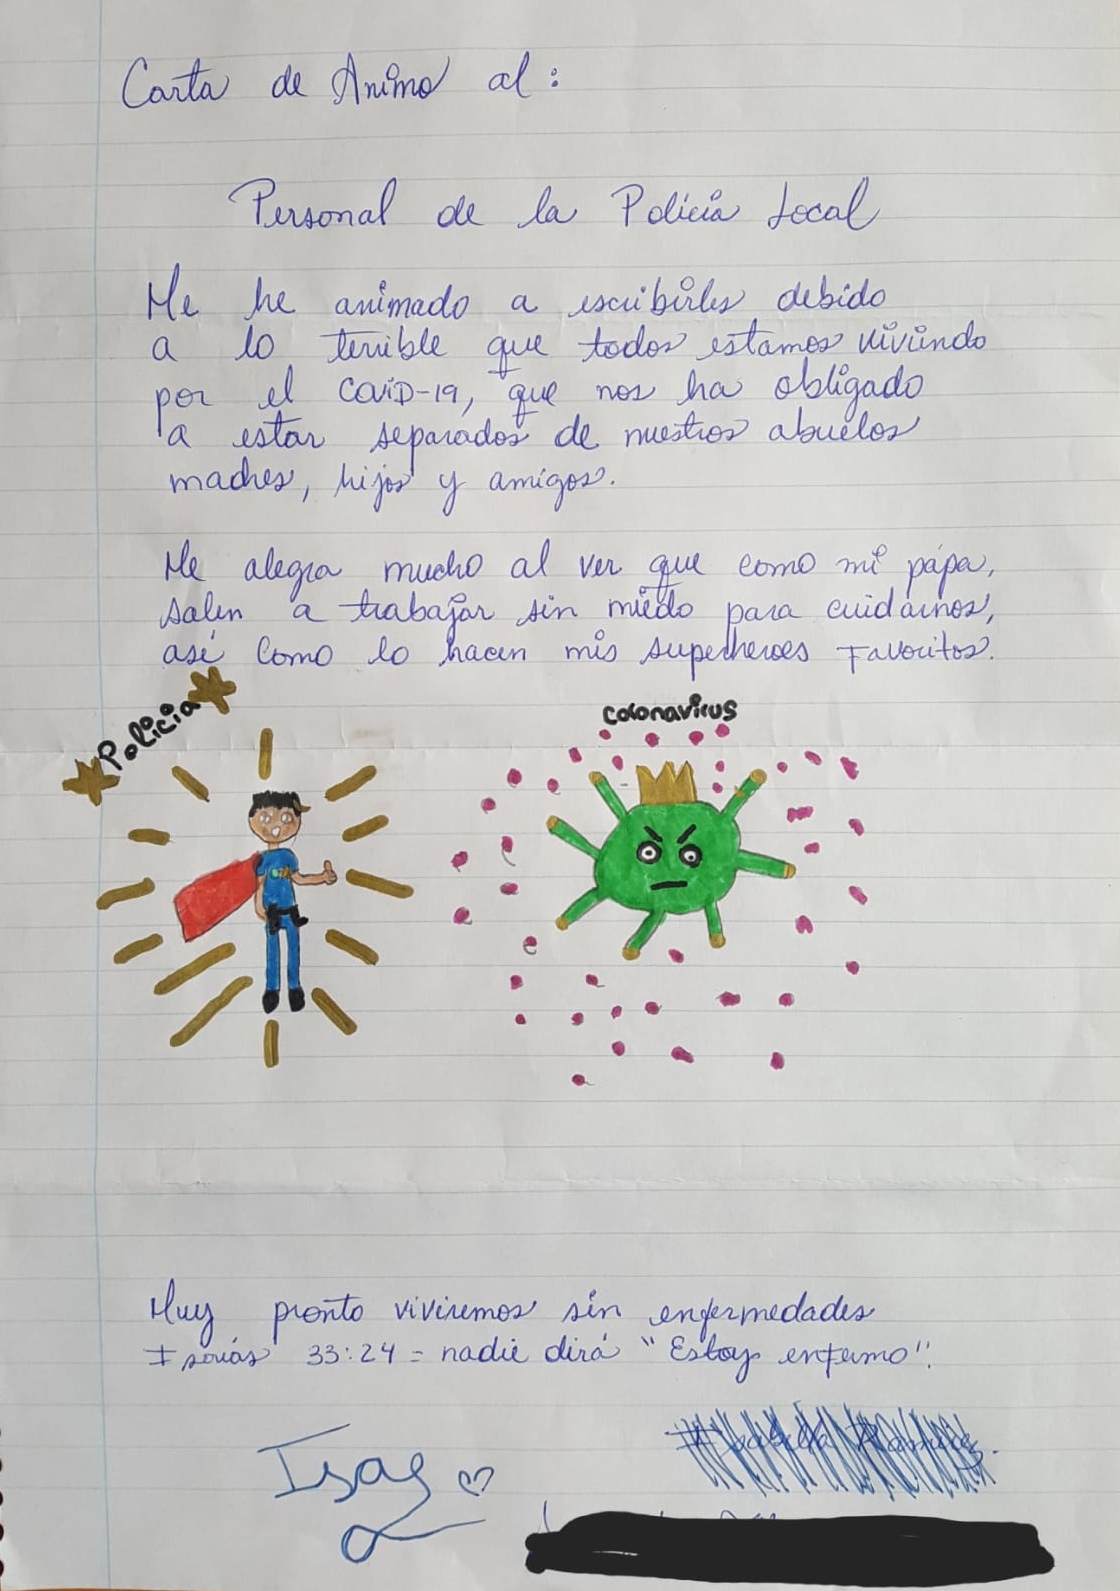 Carta de Animo al:
Personal de la Policía Local
Me he animado a escribirles debido
a lo terrible que todos estamos viviendo
por el COVID-19, que nos ha obligado
a estar separados de nuestros abuelos
madres, hijos y amigos.
Me alegra mucho al ver que como mi pápa,
salen a trabajar sin miedo para cuidarnos,
asi como lo hacen mis superheroes Favoritos.
Policia
Coronavirus
Muy pronto viviremos sin enfermedades
Isaías 33:24 = nadie dirá "Estoy enfermo".
Isa